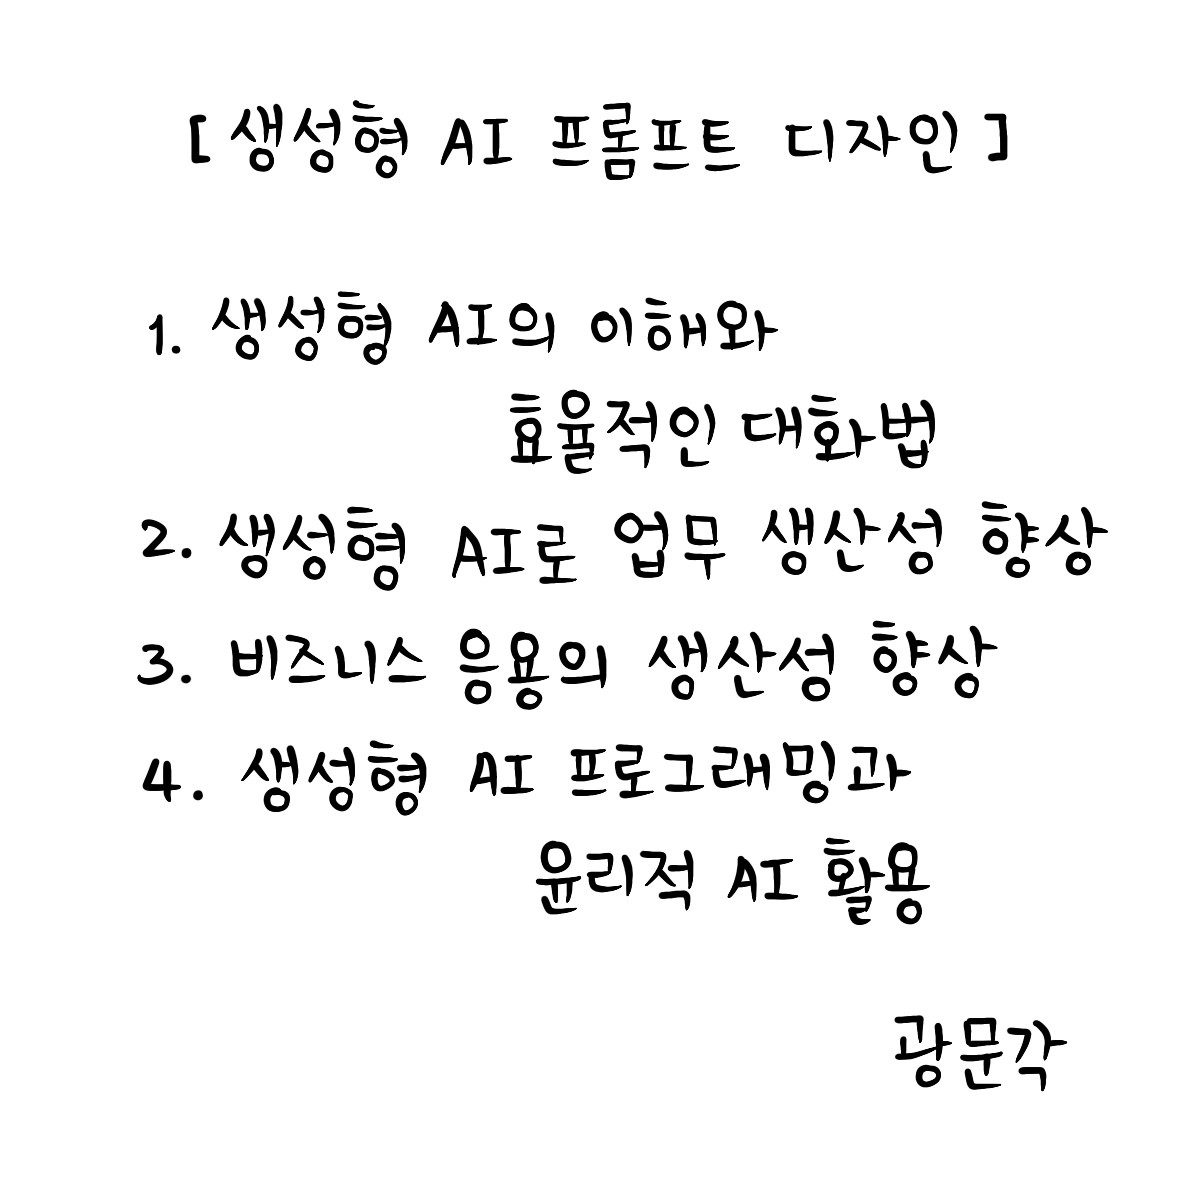 [생성형 AI 프롬프트 디자인]
1. 생성형 AI의 이해와
효율적인 대화법
2. 생성형 AI로 업무 생산성 향상
3. 비즈니스 응용의 생산성 향상
4. 생성형 AI 프로그래밍과
윤리적 AI 활용
광문각